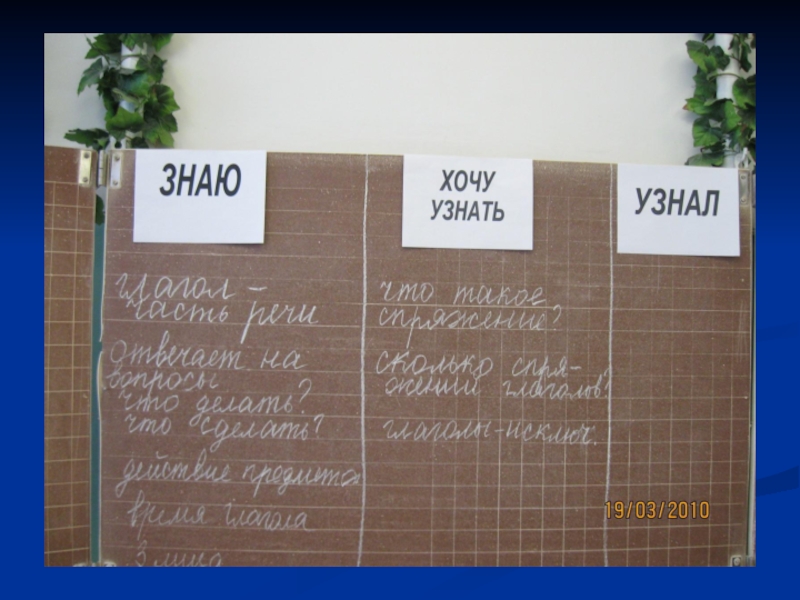 ЗНАЮ
глагол –
часть речи
отвечает на
вопросы
что делать?
что сделать?
действие предмета
время глагола
3 лица
ХОЧУ
УЗНАТЬ
что такое
спряжение?
сколько спря-
жений глаголов?
глаголы-исключ.
УЗНАЛ
19/03/2010